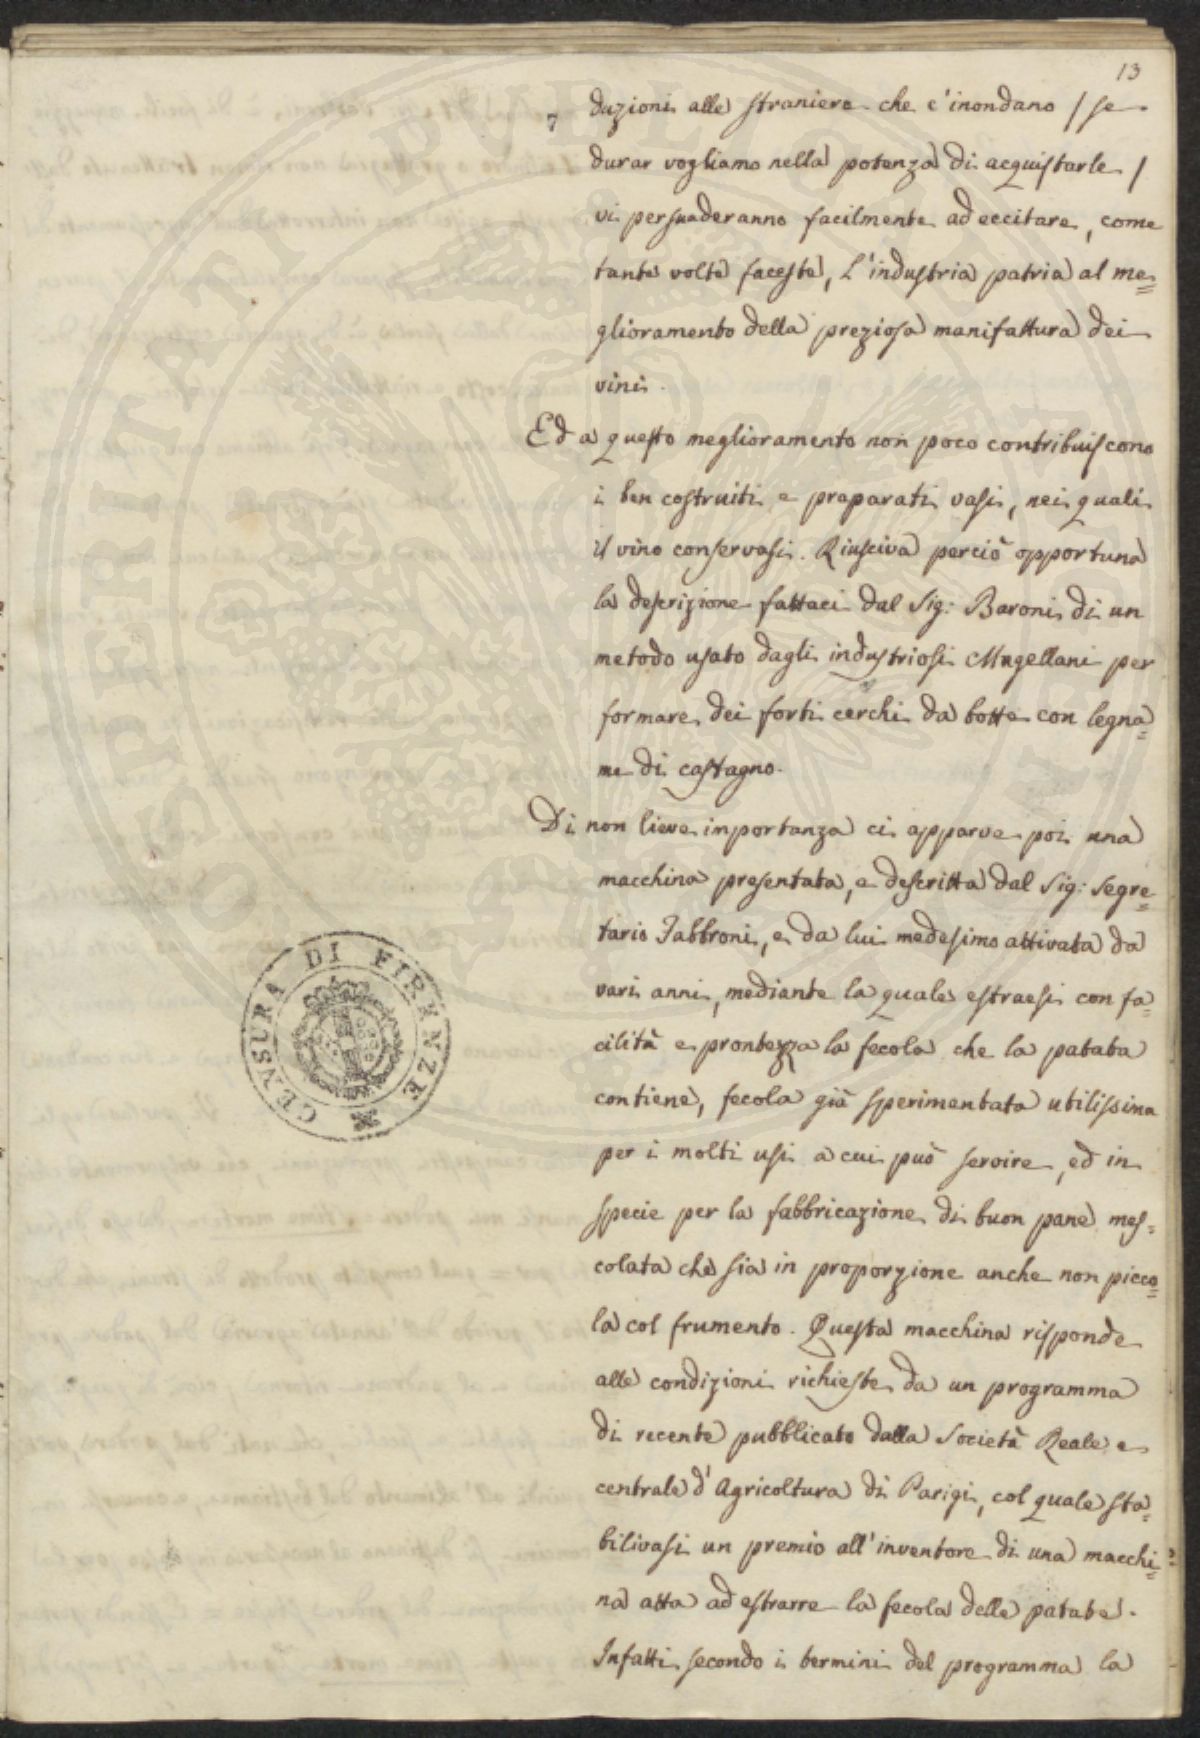 13
7
duzioni alle straniere che c'inondano / se
durar vogliamo nella potenza di acquistarle /
vi persuaderanno facilmente ad eccitare, come
tante volte faceste, l'industria patria al me=
glioramento della preziosa manifattura dei
vini.
Ed a questo meglioramento non poco contribuiscono
i ben costruiti e preparati vasi, nei quali
il vino conservasi. Riusciva perciò opportuna
la descrizione fattaci dal Sig: Baroni di un
metodo usato dagli industriosi Mugellani per
formare dei forti cerchi da botte con legna=
me di castagno.
Di non lieve importanza ci apparve poi una
macchina presentata, e descritta dal Sig: Segre=
tario Fabbroni, e da lui medesimo attivata da
vari anni, mediante la quale estraesi con fa=
cilità e prontezza la fecola che la patata
contiene, fecola già sperimentata utilissima
per i molti usi a cui può servire, ed in
specie per la fabbricazione di buon pane mes=
colata che sia in proporzione anche non picco=
la col frumento. Questa macchina risponde
alle condizioni richieste da un programma
di recente pubblicato dalla Società Reale e
centrale d'Agricoltura di Parigi, col quale sta=
bilivasi un premio all'inventore di una macchi=
na atta ad estrarre la fecola delle patate.
Infatti secondo i termini del programma la
CENSURA DI FIRENZE
PVBLICAE
PROSPERITATI